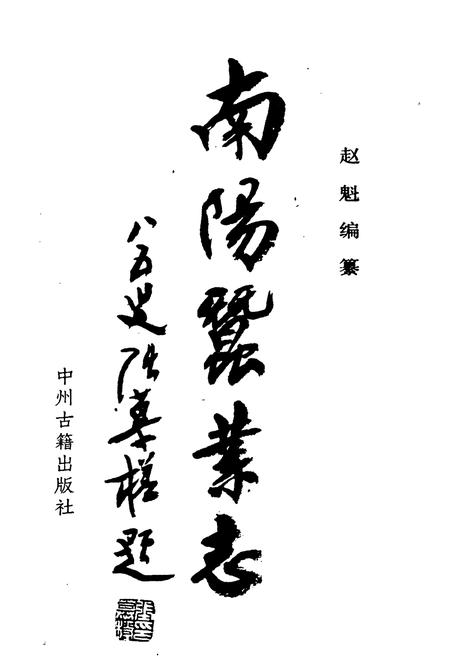 赵魁编纂
南陽蠶業志
八五叟張春樵題
中州古籍出版社